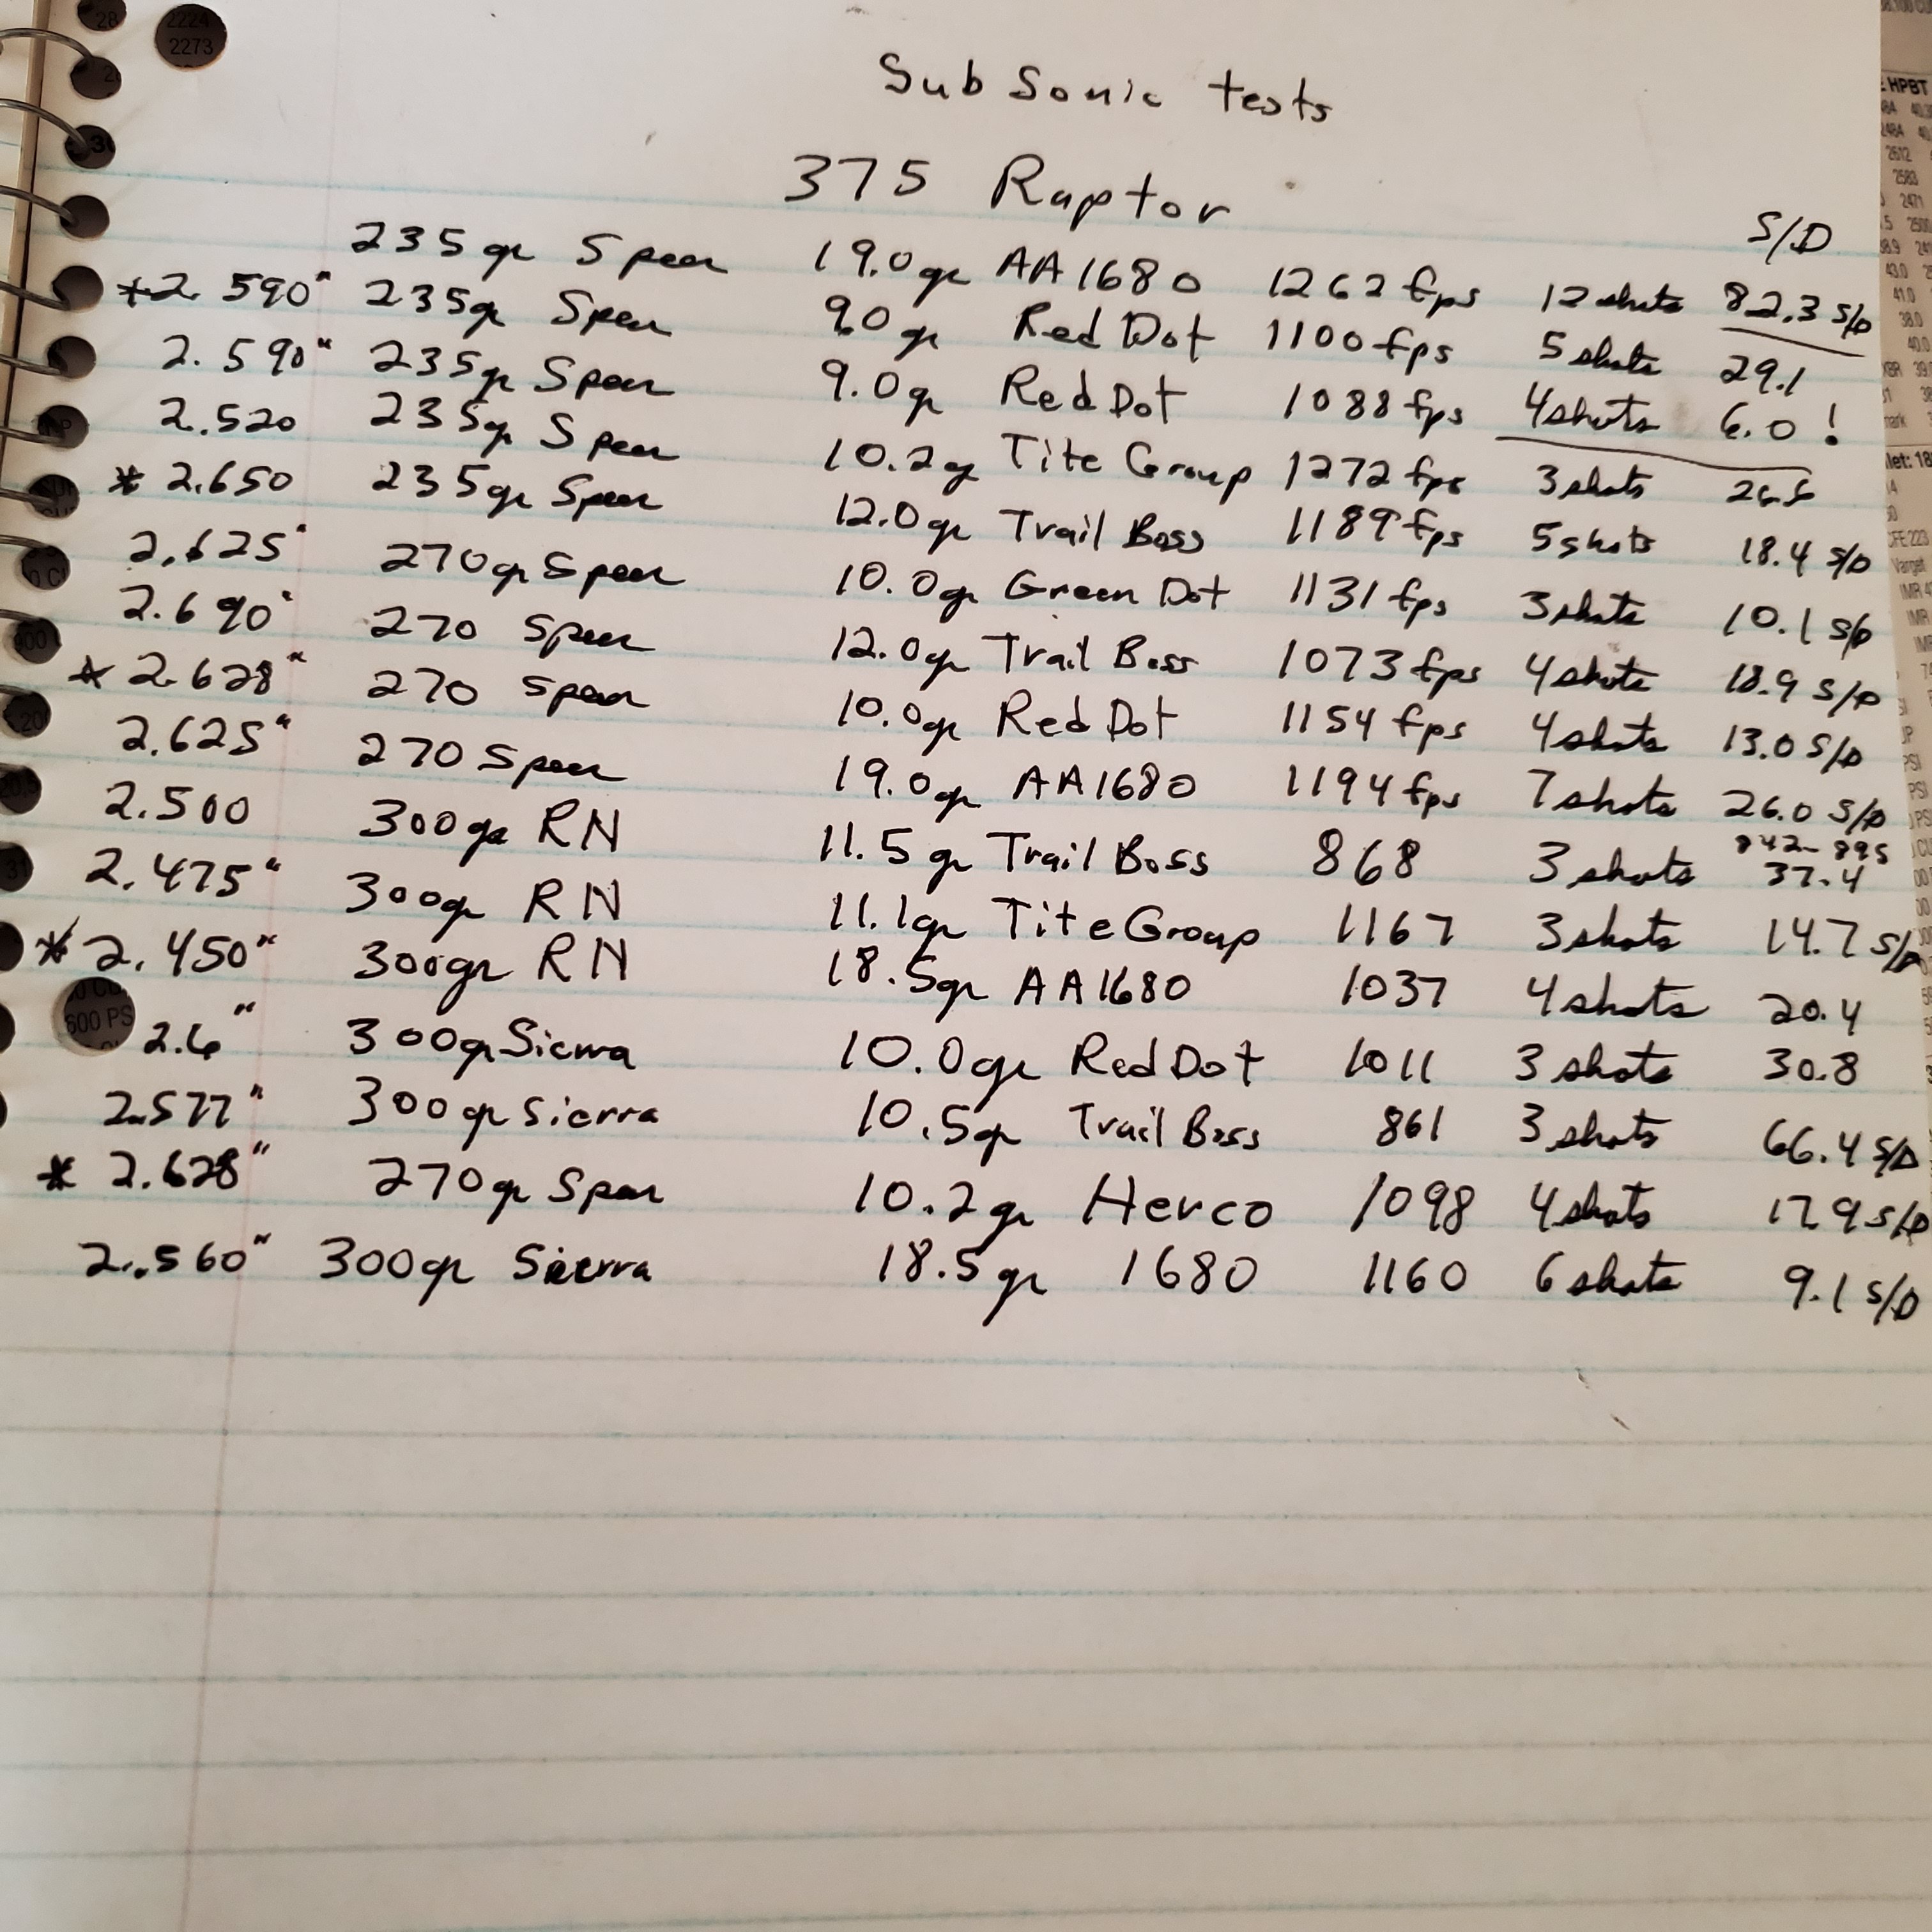 Sub Sonic tests
375 Raptor
S/D
235gr Speer 19.0gr AA1680 1262 fps 12 shots 82.3 S/D
*2.590" 235gr Speer 9.0 gr Red Dot 1100 fps 5 shots 29.1
2.590" 235gr Speer 9.0gr Red Dot 1088 fps 4 shots 6.0 !
2.520 235gr Speer 10.2g Tite Group 1272 fps 3 shots
* 2.650 235gr Speer 12.0gr Trail Boss 1189 fps 5 shots 18.4 S/D
2.625" 270gr Speer 10.0gr Green Dot 1131 fps 3 shots 10.1 S/D
2.690" 270 Speer 12.0gr Trail Boss 1073 fps 4 shots 18.9 S/D
* 2.628" 270 Speer 10.0gr Red Dot 1154 fps 4 shots 13.0 S/D
2.625" 270 Speer 19.0gr AA1680 1194 fps 7 shots 26.0 S/D
842-895
2.500 300gr RN 11.5gr Trail Boss 868 3 shots 37.4
2.475" 300gr RN 11.1gr Tite Group 1167 3 shots 14.7 S/D
* 2.450" 300gr RN 18.5gr AA1680 1037 4 shots 20.4
2.6" 300gr Sierra 10.0gr Red Dot 1011 3 shots 30.8
2.577" 300gr Sierra 10.5gr Trail Boss 861 3 shots 66.4 S/D
* 2.628" 270gr Speer 10.2gr Herco 1098 4 shots 17.9 S/D
2.560" 300gr Sierra 18.5gr 1680 1160 6 shots 9.1 S/D
2224
2273
600 PS
HPBT